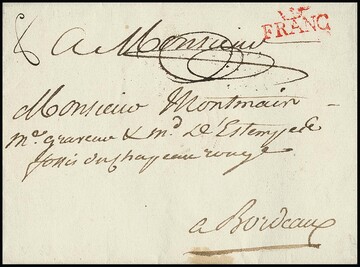 FRANC
A Monsieur
Monsieur Montmain
Me. graveur & Md D'Estempe
fossés du chapeau rouge
a Bordeaux